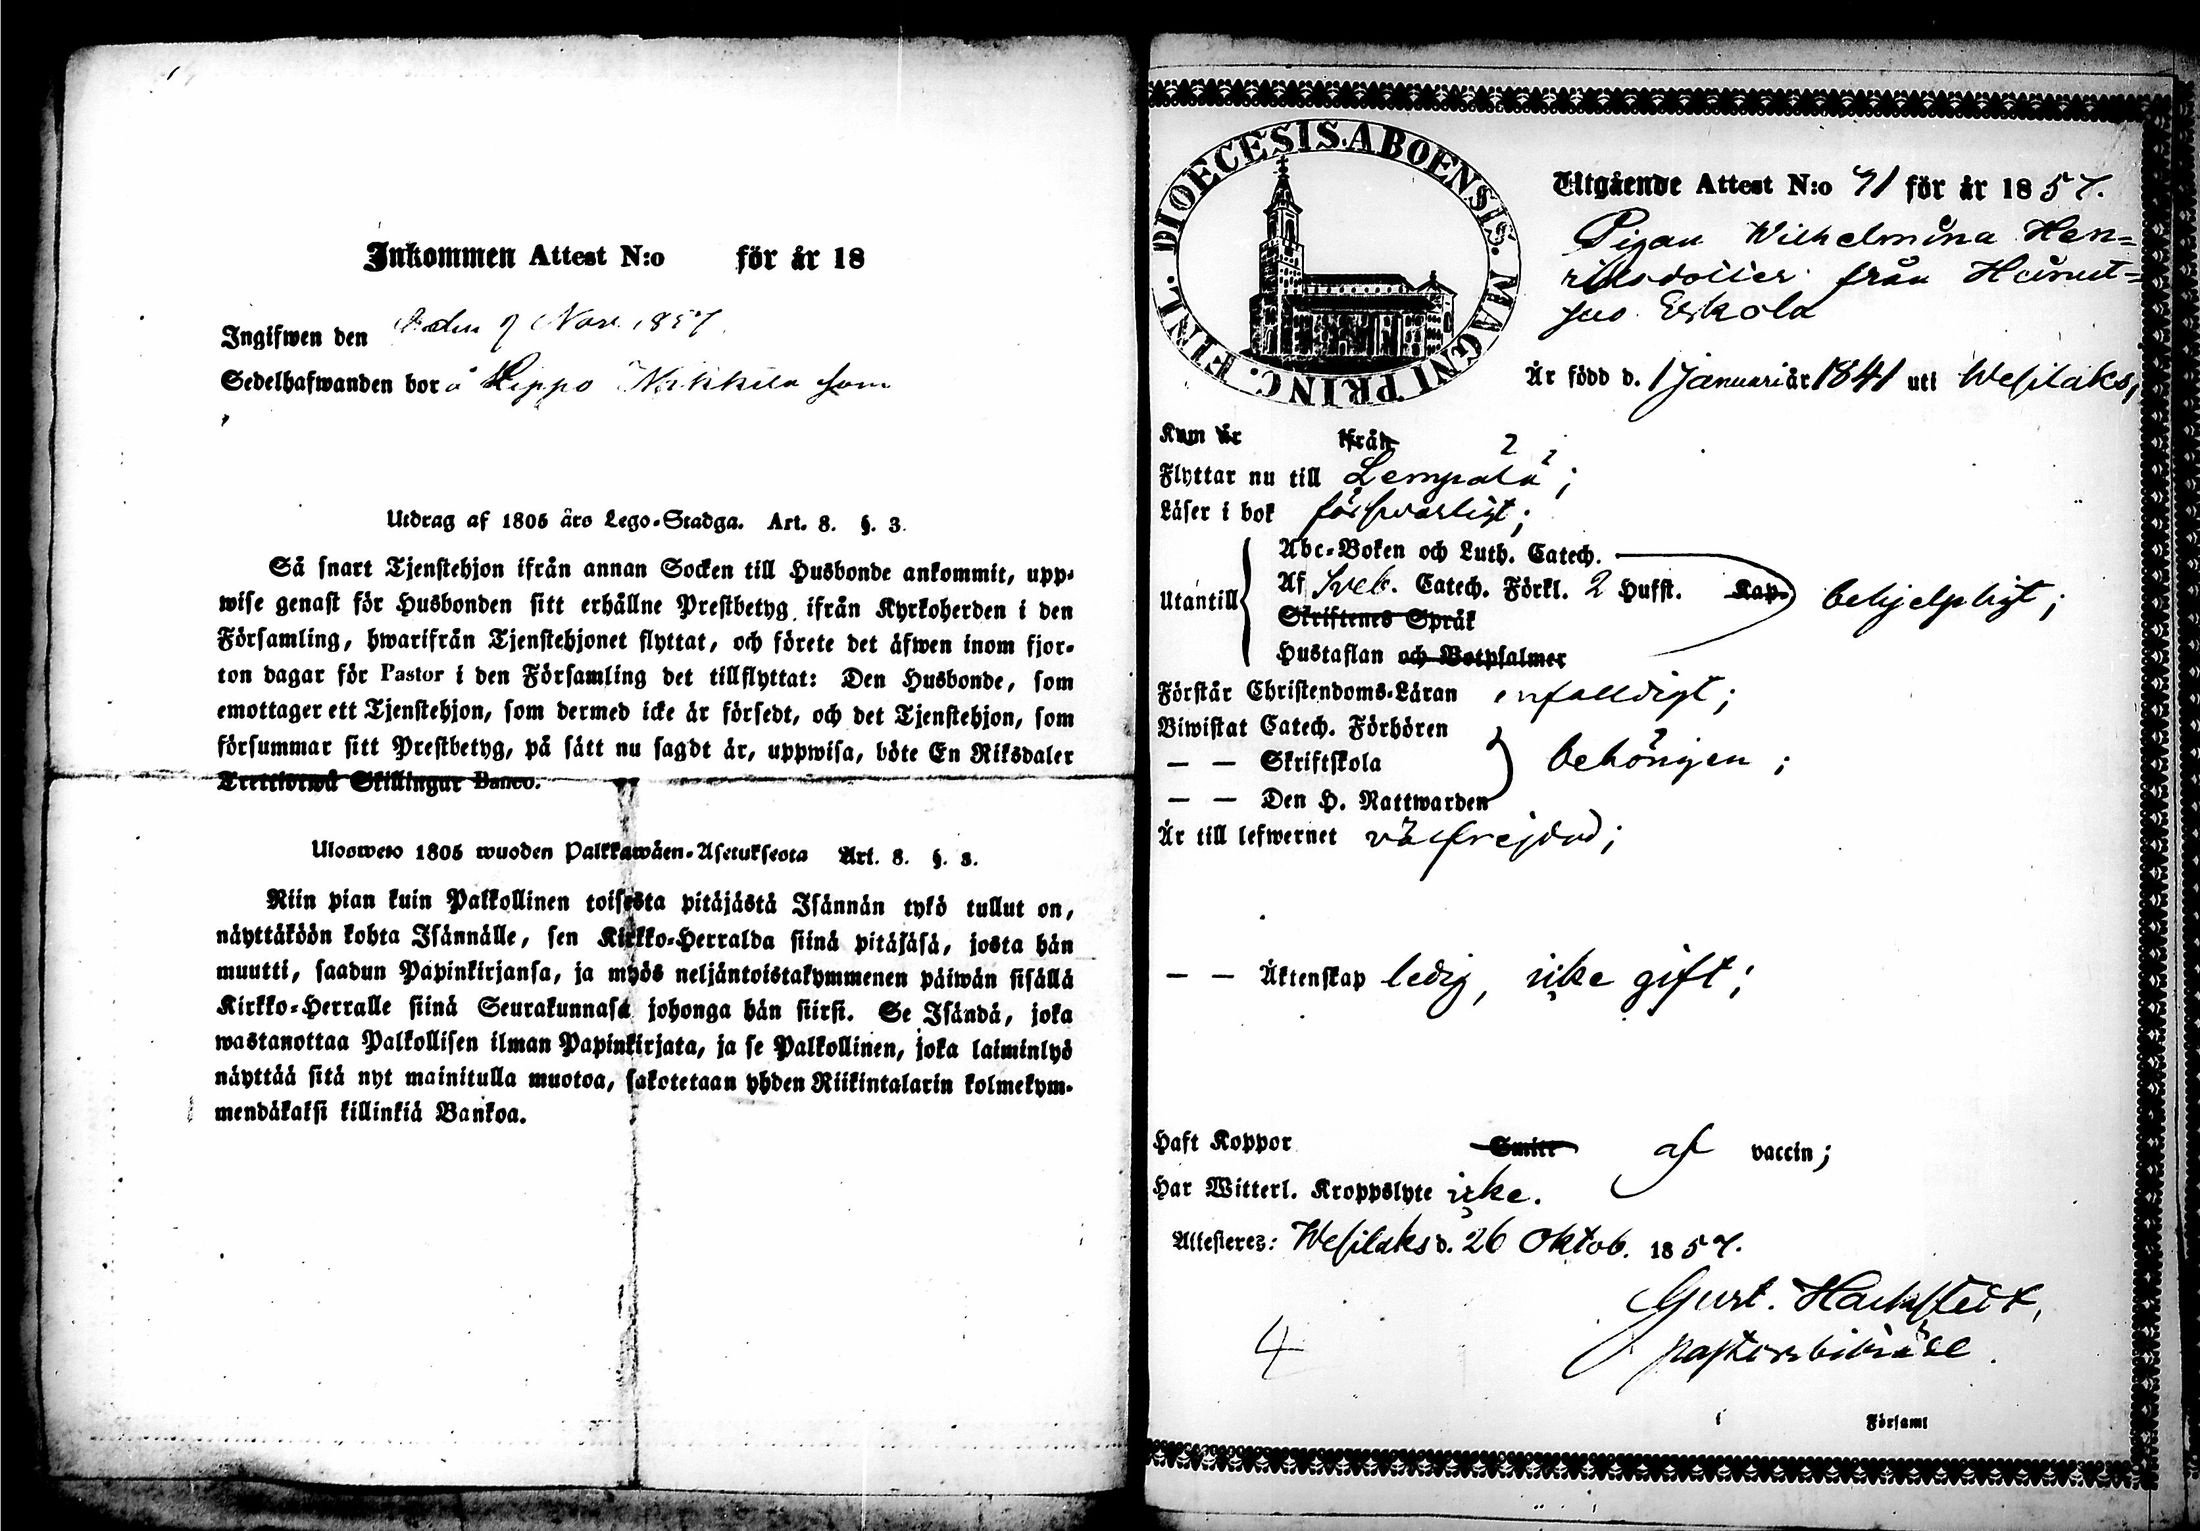 Inkommen Attest N:o för år 18
Ingifwen den den 9 Nov. 1857.
Sedelhafwanden bor å Lippo Mikkila som
Utdrag af 1805 års Lego-Stadga. Art. 8. §. 3.
Så snart Tjenstehjon ifrån annan Socken till Husbonde ankommit, upp-
wise genast för Husbonden sitt erhållne Prestbetyg ifrån Kyrkoherden i den
Församling, hwarifrån Tjenstehjonet flyttat, och förete det äfwen inom fjor-
ton dagar för Pastor i den Församling det tillflyttat: Den Husbonde, som
emottager ett Tjenstehjon, som dermed icke är försedt, och det Tjenstehjon, som
försummar sitt Prestbetyg, på sätt nu sagdt är, uppwisa, böte En Riksdaler
Trettiotwå Skillingar Banco.
Ulosweto 1805 wuoden Palkkawäen-Asetuksesta Art. 8. §. 3.
Niin pian kuin Palkollinen toisesta pitäjästä Isännän tykö tullut on,
näyttäköön kohta Isännälle, sen Kirkko-Herralda siinä pitäjäsä, josta hän
muutti, saadun Papinkirjansa, ja myös neljäntoistakymmenen päiwän sisällä
Kirkko-Herralle siinä Seurakunnasa johonga hän siirsi. Se Isändä, joka
wastanottaa Palkollisen ilman Papinkirjata, ja se Palkollinen, joka laiminlyö
näyttää sitä nyt mainitulla muotoa, sakotetaan yhden Riikintalarin kolmekym-
mendäkaksi killinkiä Bankoa.
DIOECESIS. ABOENSIS. MAGNI PRINC. FINL.
Utgående Attest N:o 91 för år 1857.
Pigan Wilhelmina Hen-
riksdotter från
Eskola
Är född d. 1 Januari år 1841 uti Wesilaks,
Kom år ifrån
Flyttar nu till Lempälä;
Läser i bok försvarligt;
Utantill
Abc-Boken och Luth. Catech.
Af Sveb. Catech. Förkl. 2 Hufst. Kap. behjelpligt;
Skriftenes Språk
Hustaflan och Botpsalmer
Förstår Christendoms-Läran enfalldigt;
Biwistat Catech. Förhören
— — Skriftskola behörigen;
— — Den H. Nattwarden
Är till lefwernet välfrejdad;
— — Äktenskap ledig, icke gift;
Haft Koppor Smitt af vaccin;
Har Witterl. Kroppslyte icke.
Attesteres: Wesilaks d. 26 Oktob. 1857.
Gust. Hachstedt,
pastorsbiträde.
4
i Förssaml